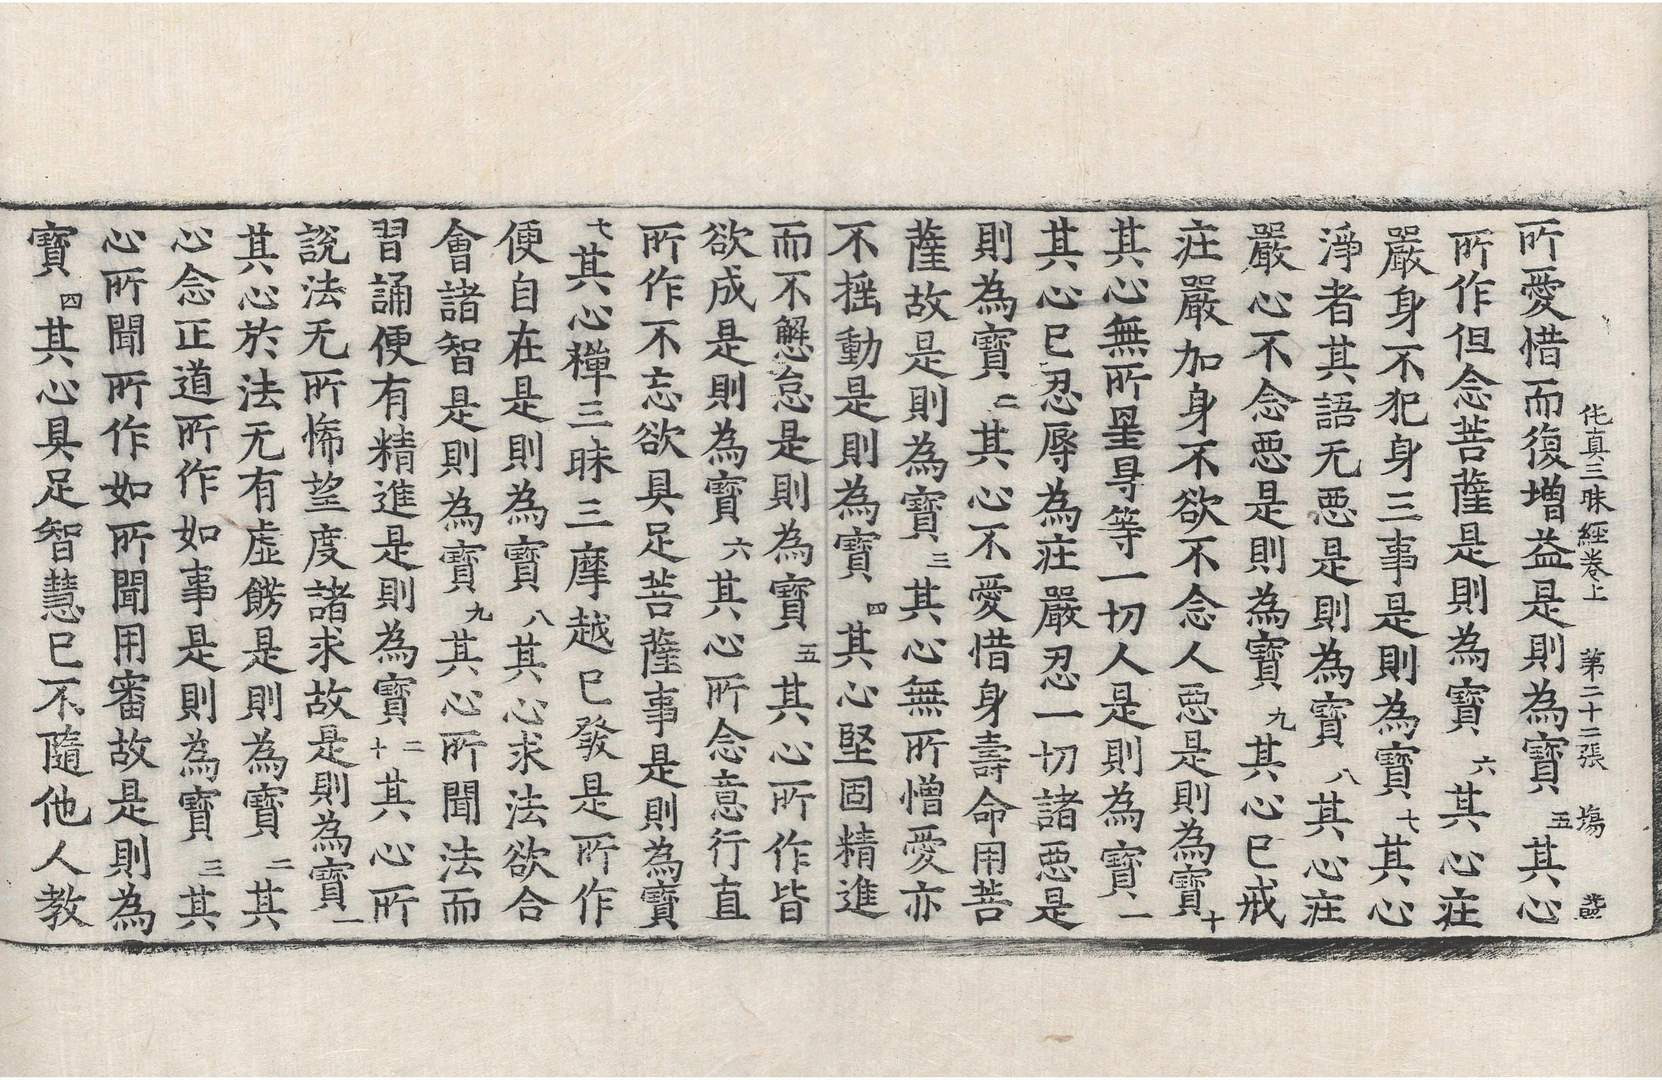 伅真三昧經卷上　第二十二張　塲
所愛惜而復增益是則為寶五其心
所作但念菩薩是則為寶六其心莊
嚴身不犯身三事是則為寶七其心
淨者其語无惡是則為寶八其心莊
嚴心不念惡是則為寶九其心已戒
莊嚴加身不欲不念人惡是則為寶十
其心無所罣㝵等一切人是則為寶一
其心已忍辱為莊嚴忍一切諸惡是
則為寶二其心不愛惜身壽命用菩
薩故是則為寶三其心無所憎愛亦
不揺動是則為寶四其心堅固精進
而不懈怠是則為寶五其心所作皆
欲成是則為寶六其心所念意行直
所作不忘欲具足菩薩事是則為寶
七其心禪三昧三摩越已發是所作
便自在是則為寶八其心求法欲合
會諸智是則為寶九其心所聞法而
習誦便有精進是則為寶二十其心所
說法无所悕望度諸求故是則為寶一
其心於法无有虛餝是則為寶二其
心念正道所作如事是則為寶三其
心所聞所作如所聞用審故是則為
寶四其心具足智慧已不隨他人教